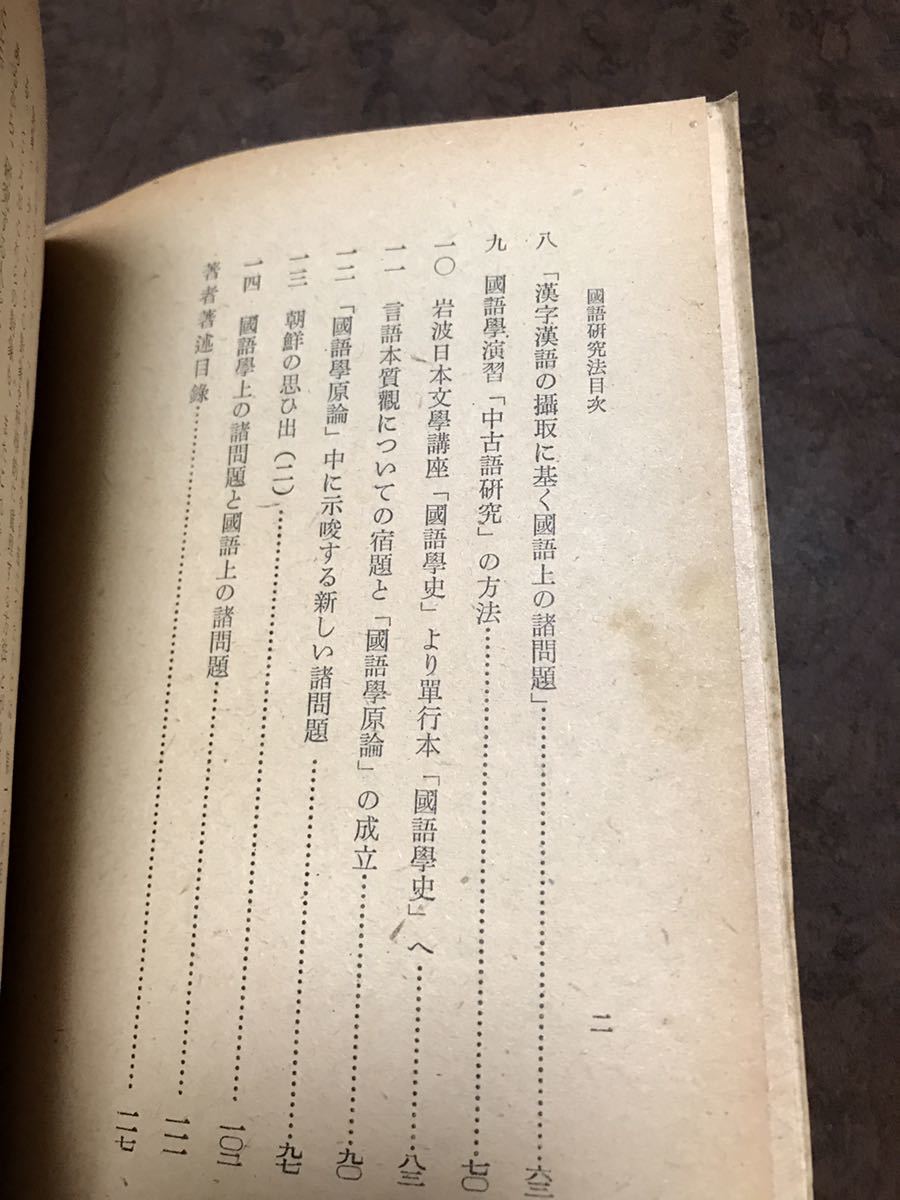 國語研究法目次
二
八 「漢字漢語の攝取に基く國語上の諸問題」……六三
九 國語學演習「中古語研究」の方法……七〇
一〇 岩波日本文學講座「國語學史」より單行本「國語學史」へ……八三
一一 言語本質觀についての宿題と「國語學原論」の成立……九〇
一二 「國語學原論」中に示唆する新しい諸問題……九七
一三 朝鮮の思ひ出(二)……一〇二
一四 國語學上の諸問題と國語上の諸問題……一一一
著者著述目錄……一一七